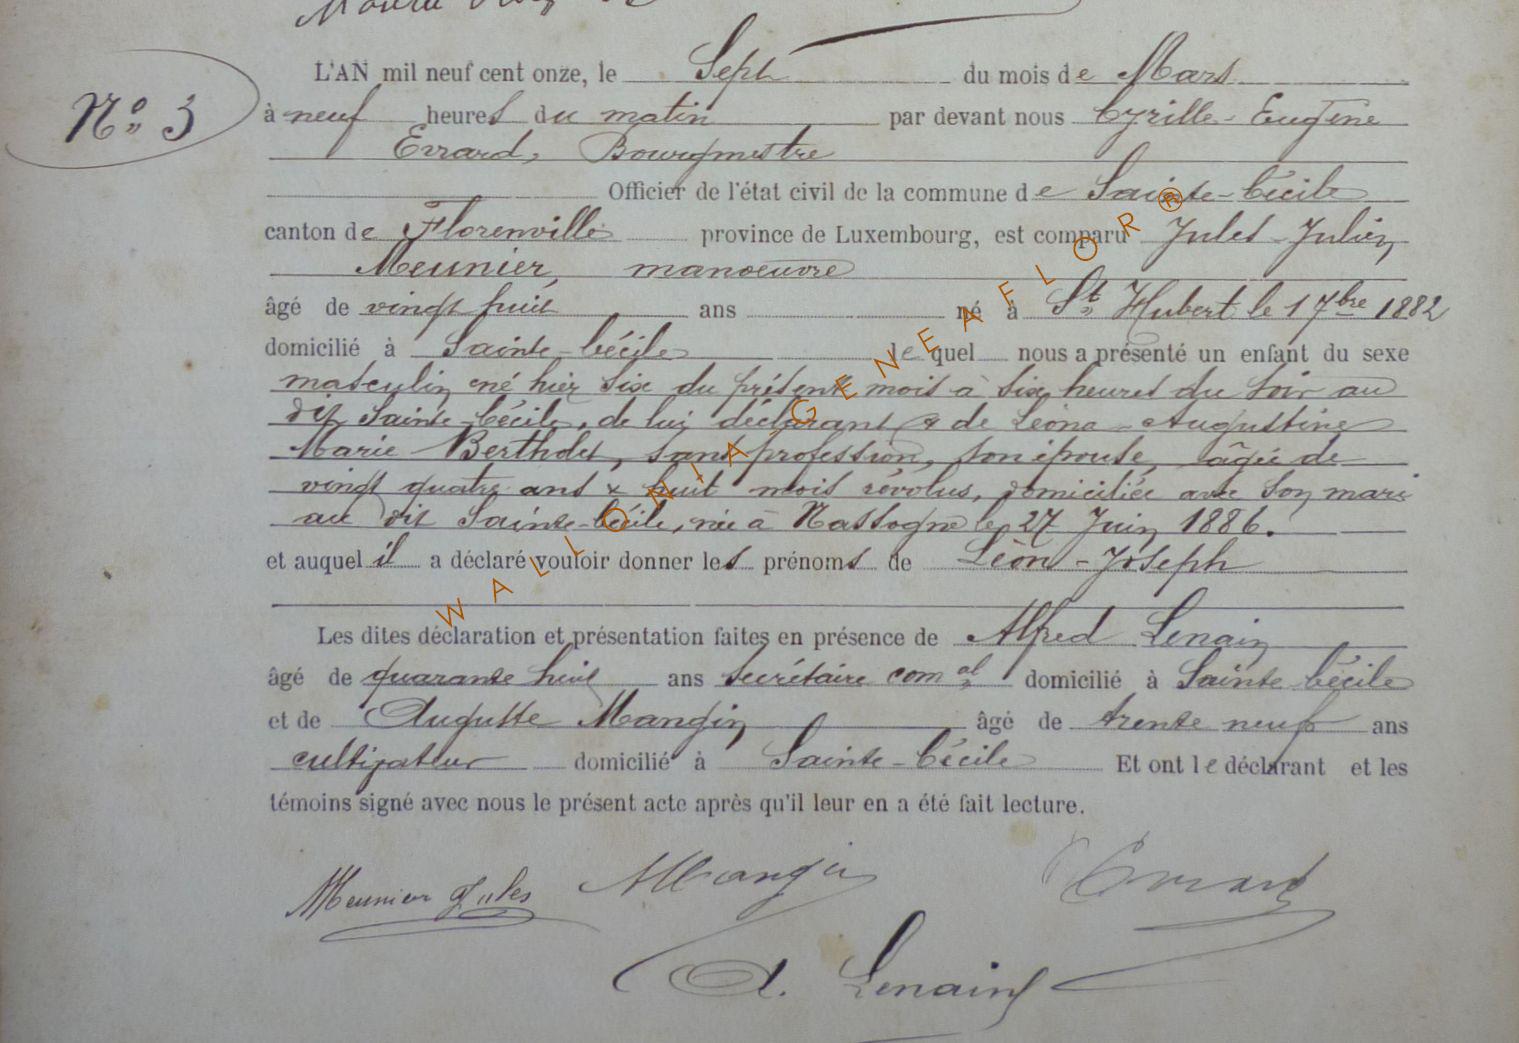 L'AN mil neuf cent onze, le Sept du mois de Mars
N° 3
à neuf heures du matin par devant nous Cyrille-Eugène
Evrard, Bourgmestre
Officier de l'état civil de la commune de Sainte-Cécile
canton de Florenville province de Luxembourg, est comparu Jules-Julien
Meunier, manoeuvre
âgé de vingt huit ans né à St Hubert le 1 7bre 1882
domicilié à Sainte-Cécile lequel nous a présenté un enfant du sexe
masculin né hier six du présent mois à six heures du soir au
dit Sainte-Cécile, de lui déclarant & de Léona-Augustine
Marie Bertholet, sans profession, son épouse, âgée de
vingt quatre ans & huit mois révolus, domiciliée avec son mari
au dit Sainte-Cécile, née à Nassogne le 27 Juin 1886.
et auquel il a déclaré vouloir donner les prénoms de Léon-Joseph
Les dites déclaration et présentation faites en présence de Alfred Lenain
âgé de quarante huit ans secrétaire comal domicilié à Sainte Cécile
et de Auguste Mangin âgé de trente neuf ans
cultivateur domicilié à Sainte-Cécile Et ont le déclarant et les
témoins signé avec nous le présent acte après qu'il leur en a été fait lecture.
Meunier Jules Mangin Evrard
A. Lenain
WALLONIA-GENEAFLOR®